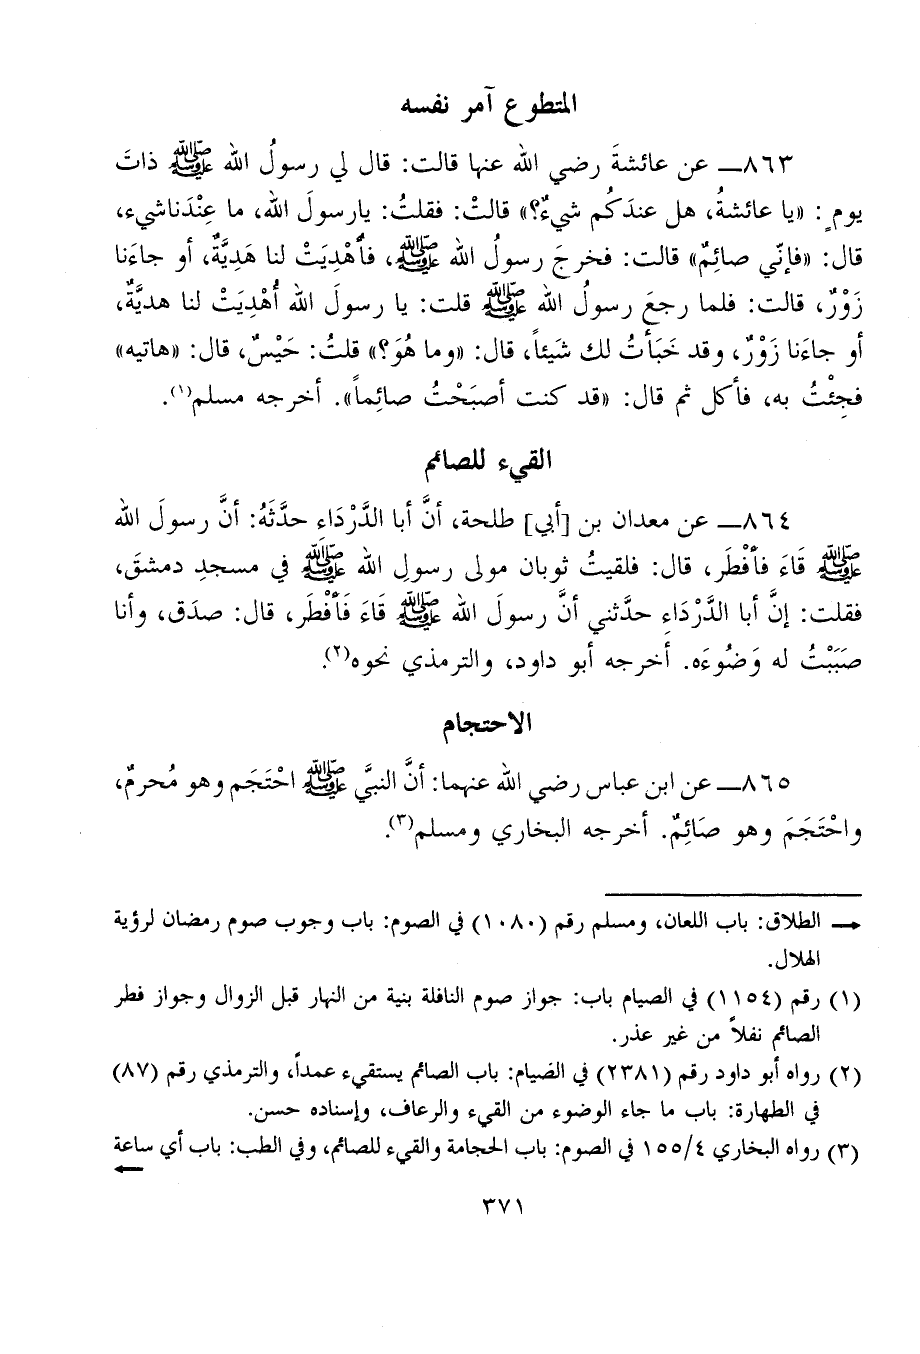 المتطوع آمر نفسه
٨٦٣ـــ عن عائشةَ رضي الله عنها قالت: قال لي رسولُ الله ﷺ ذاتَ
يومٍ: «يا عائشةُ، هل عندَكُم شيءٌ؟» قالتْ: فقلتُ: يارسولَ الله، ما عِنْدَناشيء،
قال: «فإنّي صائِمٌ» قالت: فخرجَ رسولُ الله ﷺ، فأُهْدِيَتْ لنا هَدِيَّةٌ، أو جاءَنا
زَوْرٌ، قالت: فلما رجعَ رسولُ الله ﷺ قلت: يا رسولَ الله أُهْدِيَتْ لنا هديَّةٌ،
أو جاءَنا زَوْرٌ، وقد خَبَأتُ لك شَيئاً، قال: «وما هُوَ؟» قلتُ: حَيْسٌ، قال: «هاتيه»
فجِئْتُ به، فأكل ثم قال: «قد كنت أصبَحْتُ صائِماً». أخرجه مسلم(١).
القيء للصائم
٨٦٤ـــ عن معدان بن [أبي] طلحة، أنَّ أبا الدَّرْدَاءِ حدَّثَهُ: أنَّ رسولَ الله
ﷺ قَاءَ فأفْطَر، قال: فلقيتُ ثوبان مولى رسولِ الله ﷺ في مسجدِ دمشق،
فقلت: إنَّ أبا الدَّرْدَاءِ حدَّثني أنَّ رسولَ الله ﷺ قَاءَ فَأفْطَر، قال: صدَق، وأنا
صَبَبْتُ له وَضُوءَه. أخرجه أبو داود، والترمذي نحوه(٢).
الاحتجام
٨٦٥ـــ عن ابن عباس رضي الله عنهما: أنَّ النبيَّ ﷺ احْتَجَم وهو مُحرمٌ،
واحْتَجَمَ وهو صَائِمٌ. أخرجه البخاري ومسلم(٣).
← الطلاق: باب اللعان، ومسلم رقم (١٠٨٠) في الصوم: باب وجوب صوم رمضان لرؤية
الهلال.
(١) رقم (١١٥٤) في الصيام باب: جواز صوم النافلة بنية من النهار قبل الزوال وجواز فطر
الصائم نفلاً من غير عذر.
(٢) رواه أبو داود رقم (٢٣٨١) في الصيام: باب الصائم يستقيء عمداً، والترمذي رقم (٨٧)
في الطهارة: باب ما جاء الوضوء من القيء والرعاف، وإسناده حسن.
(٣) رواه البخاري ١٥٥/٤ في الصوم: باب الحجامة والقيء للصائم، وفي الطب: باب أي ساعة ←
٣٧١